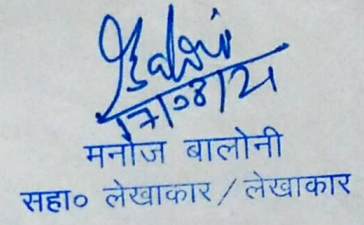 17/08/21
मनोज बालोनी
सहा० लेखाकार / लेखाकार